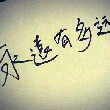 永遠有多远